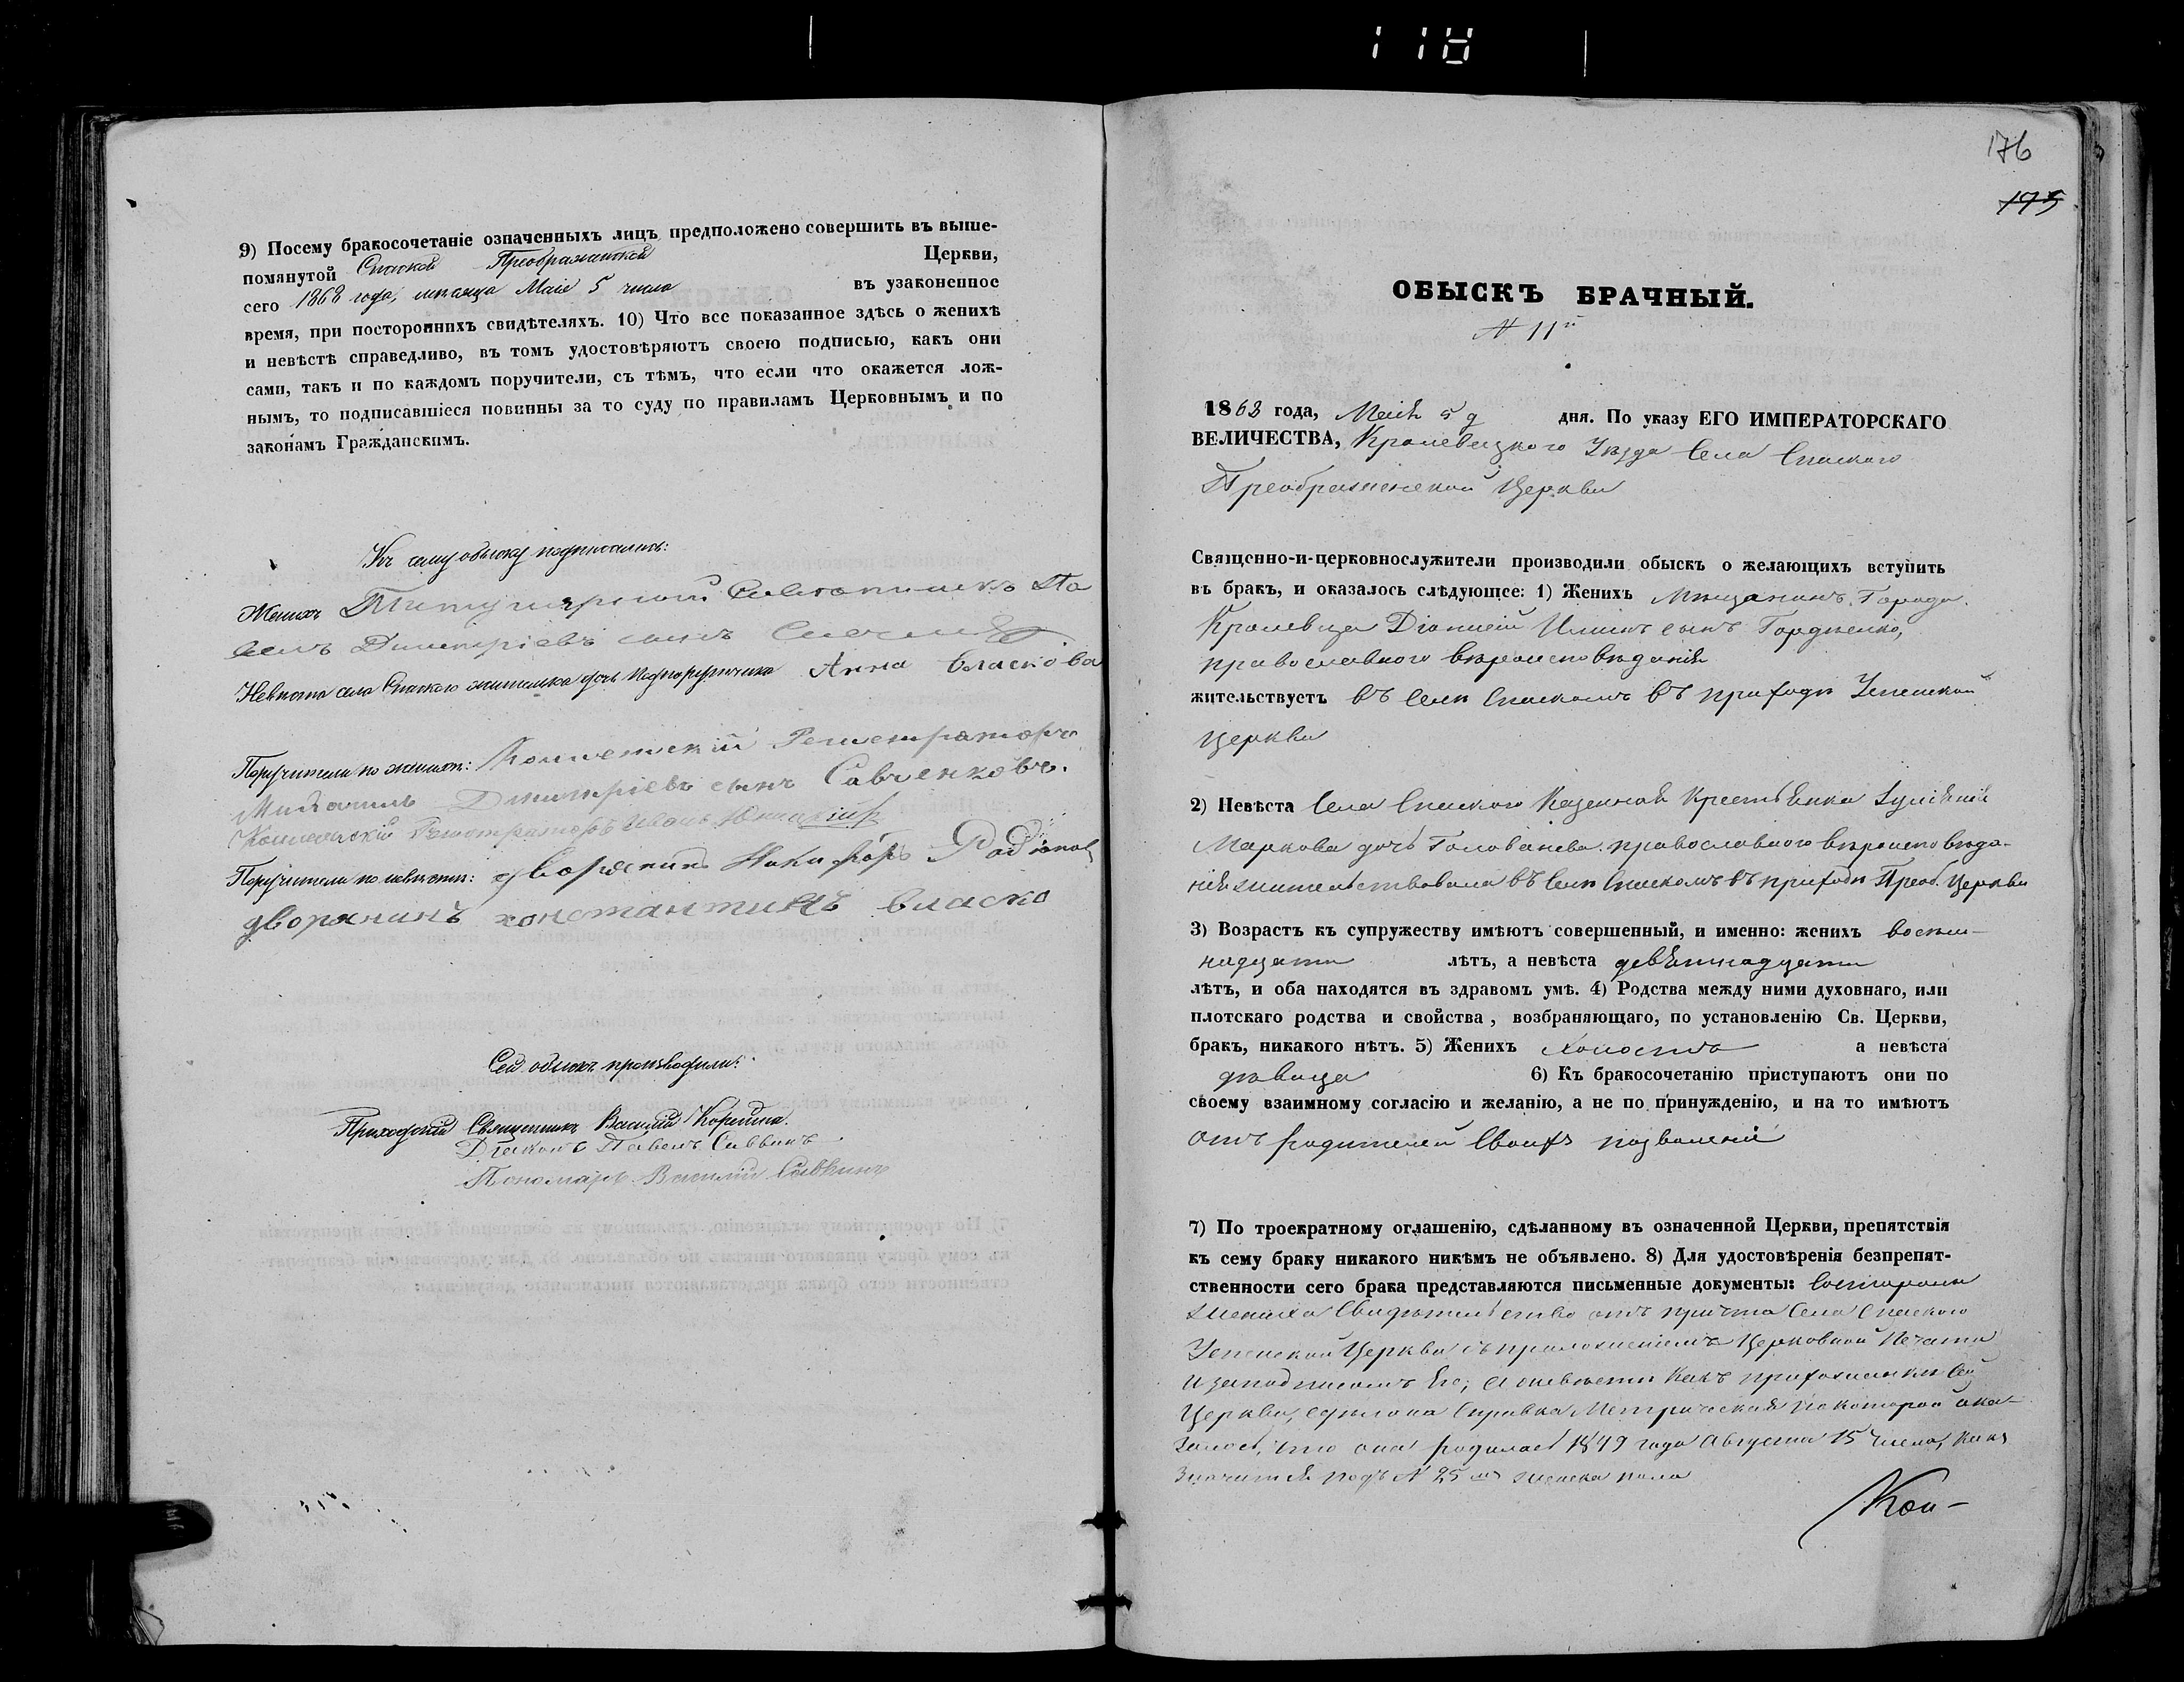 118
9) Посему бракосочетаніе означенныхъ лицъ предположено совершить въ выше-
помянутой Спаской Преображенской Церкви,
сего 1868 года, месяца Маія 5 числа въ узаконенное
время, при постороннихъ свидѣтеляхъ. 10) Что все показанное здѣсь о женихѣ
и невѣстѣ справедливо, въ томъ удостовѣряютъ своею подписью, какъ они
сами, такъ и по каждомъ поручители, съ тѣмъ, что если что окажется лож-
нымъ, то подписавшіеся повинны за то суду по правиламъ Церковнымъ и по
законамъ Гражданскимъ.
Къ сему обыску подписались:
Женихъ Титулярный Советникъ Па
велъ Димитріевъ сынъ
Невѣста села Спаского жителка дочь Подпоручика Анна Власкова
Поручители по женихѣ: Коллежскій Регистраторъ
Михаилъ Димитріевъ сынъ Савченковъ.
Коллежскій Регистраторъ Иванъ
Поручители по невѣстѣ: дворянинъ Никифоръ Родионов
дворянинъ константинъ власко
Сей обыскъ производили:
Приходскій Священникъ Василій Корейша.
Діаконъ Павелъ Саввинъ
Пономарь Василій Саввинъ
176
175
ОБЫСКЪ БРАЧНЫЙ.
N 11й
1868 года, Маія 5 д дня. По указу ЕГО ИМПЕРАТОРСКАГО
ВЕЛИЧЕСТВА, Кролевецкого Уѣзда Села Спаского
Преображенской Церкви
Священно-и-церковнослужители производили обыскъ о желающихъ вступить
въ бракъ, и оказалось слѣдующее: 1) Женихъ Мѣщанинъ Города
Кролевца Діонисій Илиинъ сынъ Гордіенко,
православного вѣроисповѣданія
жительствуетъ въ Селѣ Спаскомъ въ приходѣ Успенской
Церкви
2) Невѣста Села Спаского Казенная Крестьянка Іуліанія
Маркова дочь Голованева православного вѣроисповѣда-
нія жительствовала въ Селѣ Спаскомъ въ приходѣ Преоб. Церкви
3) Возрастъ къ супружеству имѣютъ совершенный, и именно: женихъ восем-
надцати лѣтъ, а невѣста девятнадцати
лѣтъ, и оба находятся въ здравомъ умѣ. 4) Родства между ними духовнаго, или
плотскаго родства и свойства, возбраняющаго, по установленію Св. Церкви,
бракъ, никакого нѣтъ. 5) Женихъ холостъ а невѣста
дѣвица 6) Къ бракосочетанію приступаютъ они по
своему взаимному согласію и желанію, а не по принужденію, и на то имѣютъ
отъ родителей Своихъ позволеніе
7) По троекратному оглашенію, сдѣланному въ означенной Церкви, препятствія
къ сему браку никакого никѣмъ не объявлено. 8) Для удостовѣренія безпрепят-
ственности сего брака представляются письменные документы: Состороны
жениха Свидѣтельство отъ причта Села Спаского
Успенской Церкви съ приложеніемъ Церковной Печати
и заподписомъ Его; а оневѣсти какъ прихожанки Сей
Церкви, сдѣлана Справка Метрическая покоторой ока-
залось, что она родилась 1849 года Августа 15 Числа, какъ
значится подъ N 25 женска пола
Кои-